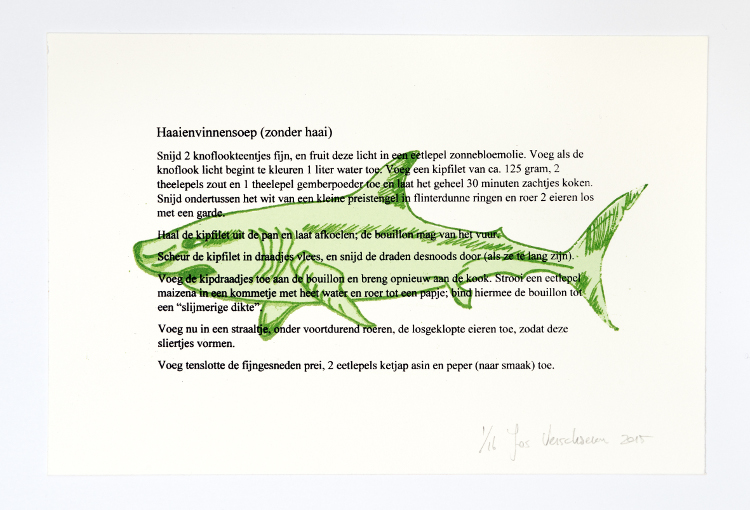 Haaienvinnensoep (zonder haai)
Snijd 2 knoflookteentjes fijn, en fruit deze licht in een eetlepel zonnebloemolie. Voeg als de
knoflook licht begint te kleuren 1 liter water toe. Voeg een kipfilet van ca. 125 gram, 2
theelepels zout en 1 theelepel gemberpoeder toe en laat het geheel 30 minuten zachtjes koken.
Snijd ondertussen het wit van een kleine preistengel in flinterdunne ringen en roer 2 eieren los
met een garde.
Haal de kipfilet uit de pan en laat afkoelen; de bouillon mag van het vuur.
Scheur de kipfilet in draadjes vlees, en snijd de draden desnoods door (als ze te lang zijn).
Voeg de kipdraadjes toe aan de bouillon en breng opnieuw aan de kook. Strooi een eetlepel
maizena in een kommetje met heet water en roer tot een papje; bind hiermee de bouillon tot
een “slijmerige dikte”.
Voeg nu in een straaltje, onder voortdurend roeren, de losgeklopte eieren toe, zodat deze
sliertjes vormen.
Voeg tenslotte de fijngesneden prei, 2 eetlepels ketjap asin en peper (naar smaak) toe.
1/16 Jos 2015